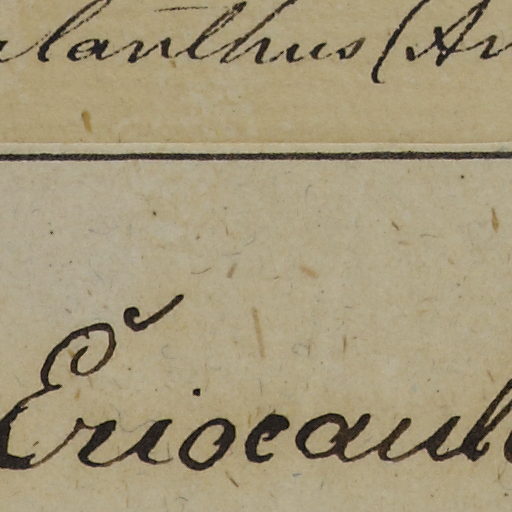 alanthus (An
Eriocaul